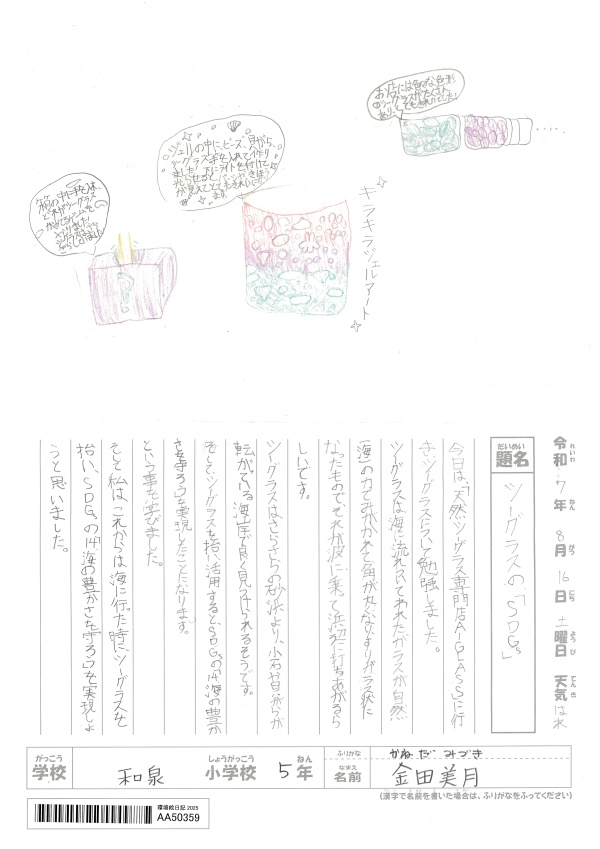 お店には色々な色や形
のシーグラスがたくさん
あり、とてもきれいでした!
ジェルの中に、ビーズ、貝がら、
シーグラス等を入れて作り
ました!LEDライトを付けて
キラキラジェルアート
箱の中に手を入れ
?
令和 7年 8月 16日 土曜日 天気 はれ
れいわ ねん がつ にち ようび てんき
だいめい
題名
シーグラスの「SDGs」
今日は、「天然シーグラス専門店A-GLASS」に行
き、シーグラスについて勉強しました。
シーグラスは海に流れついてわれたガラスが自然
(海)の力でみがかれて角が丸くなり、すりガラス状に
なったもので、それが波に乗って浜辺に打ちあがるら
しいです。
シーグラスはさらさらの砂浜より、小石や貝がらが
転がっている海岸で良く見つけられるそうです。
そして、シーグラスを拾い活用すると、SDGsの14「海の豊か
さを守ろう」を実現したことになります。
という事を学びました。
そこで私は、これからは海に行った時に、シーグラスを
拾い、SDGsの14「海の豊かさを守ろう」を実現しよ
うと思いました。
がっこう
学校
和泉
しょうがっこう
小学校
5
ねん
年
ふりがな
かねだ みづき
なまえ
名前
金田美月
(漢字で名前を書いた場合は、ふりがなをふってください)
環境絵日記 2025
AA50359